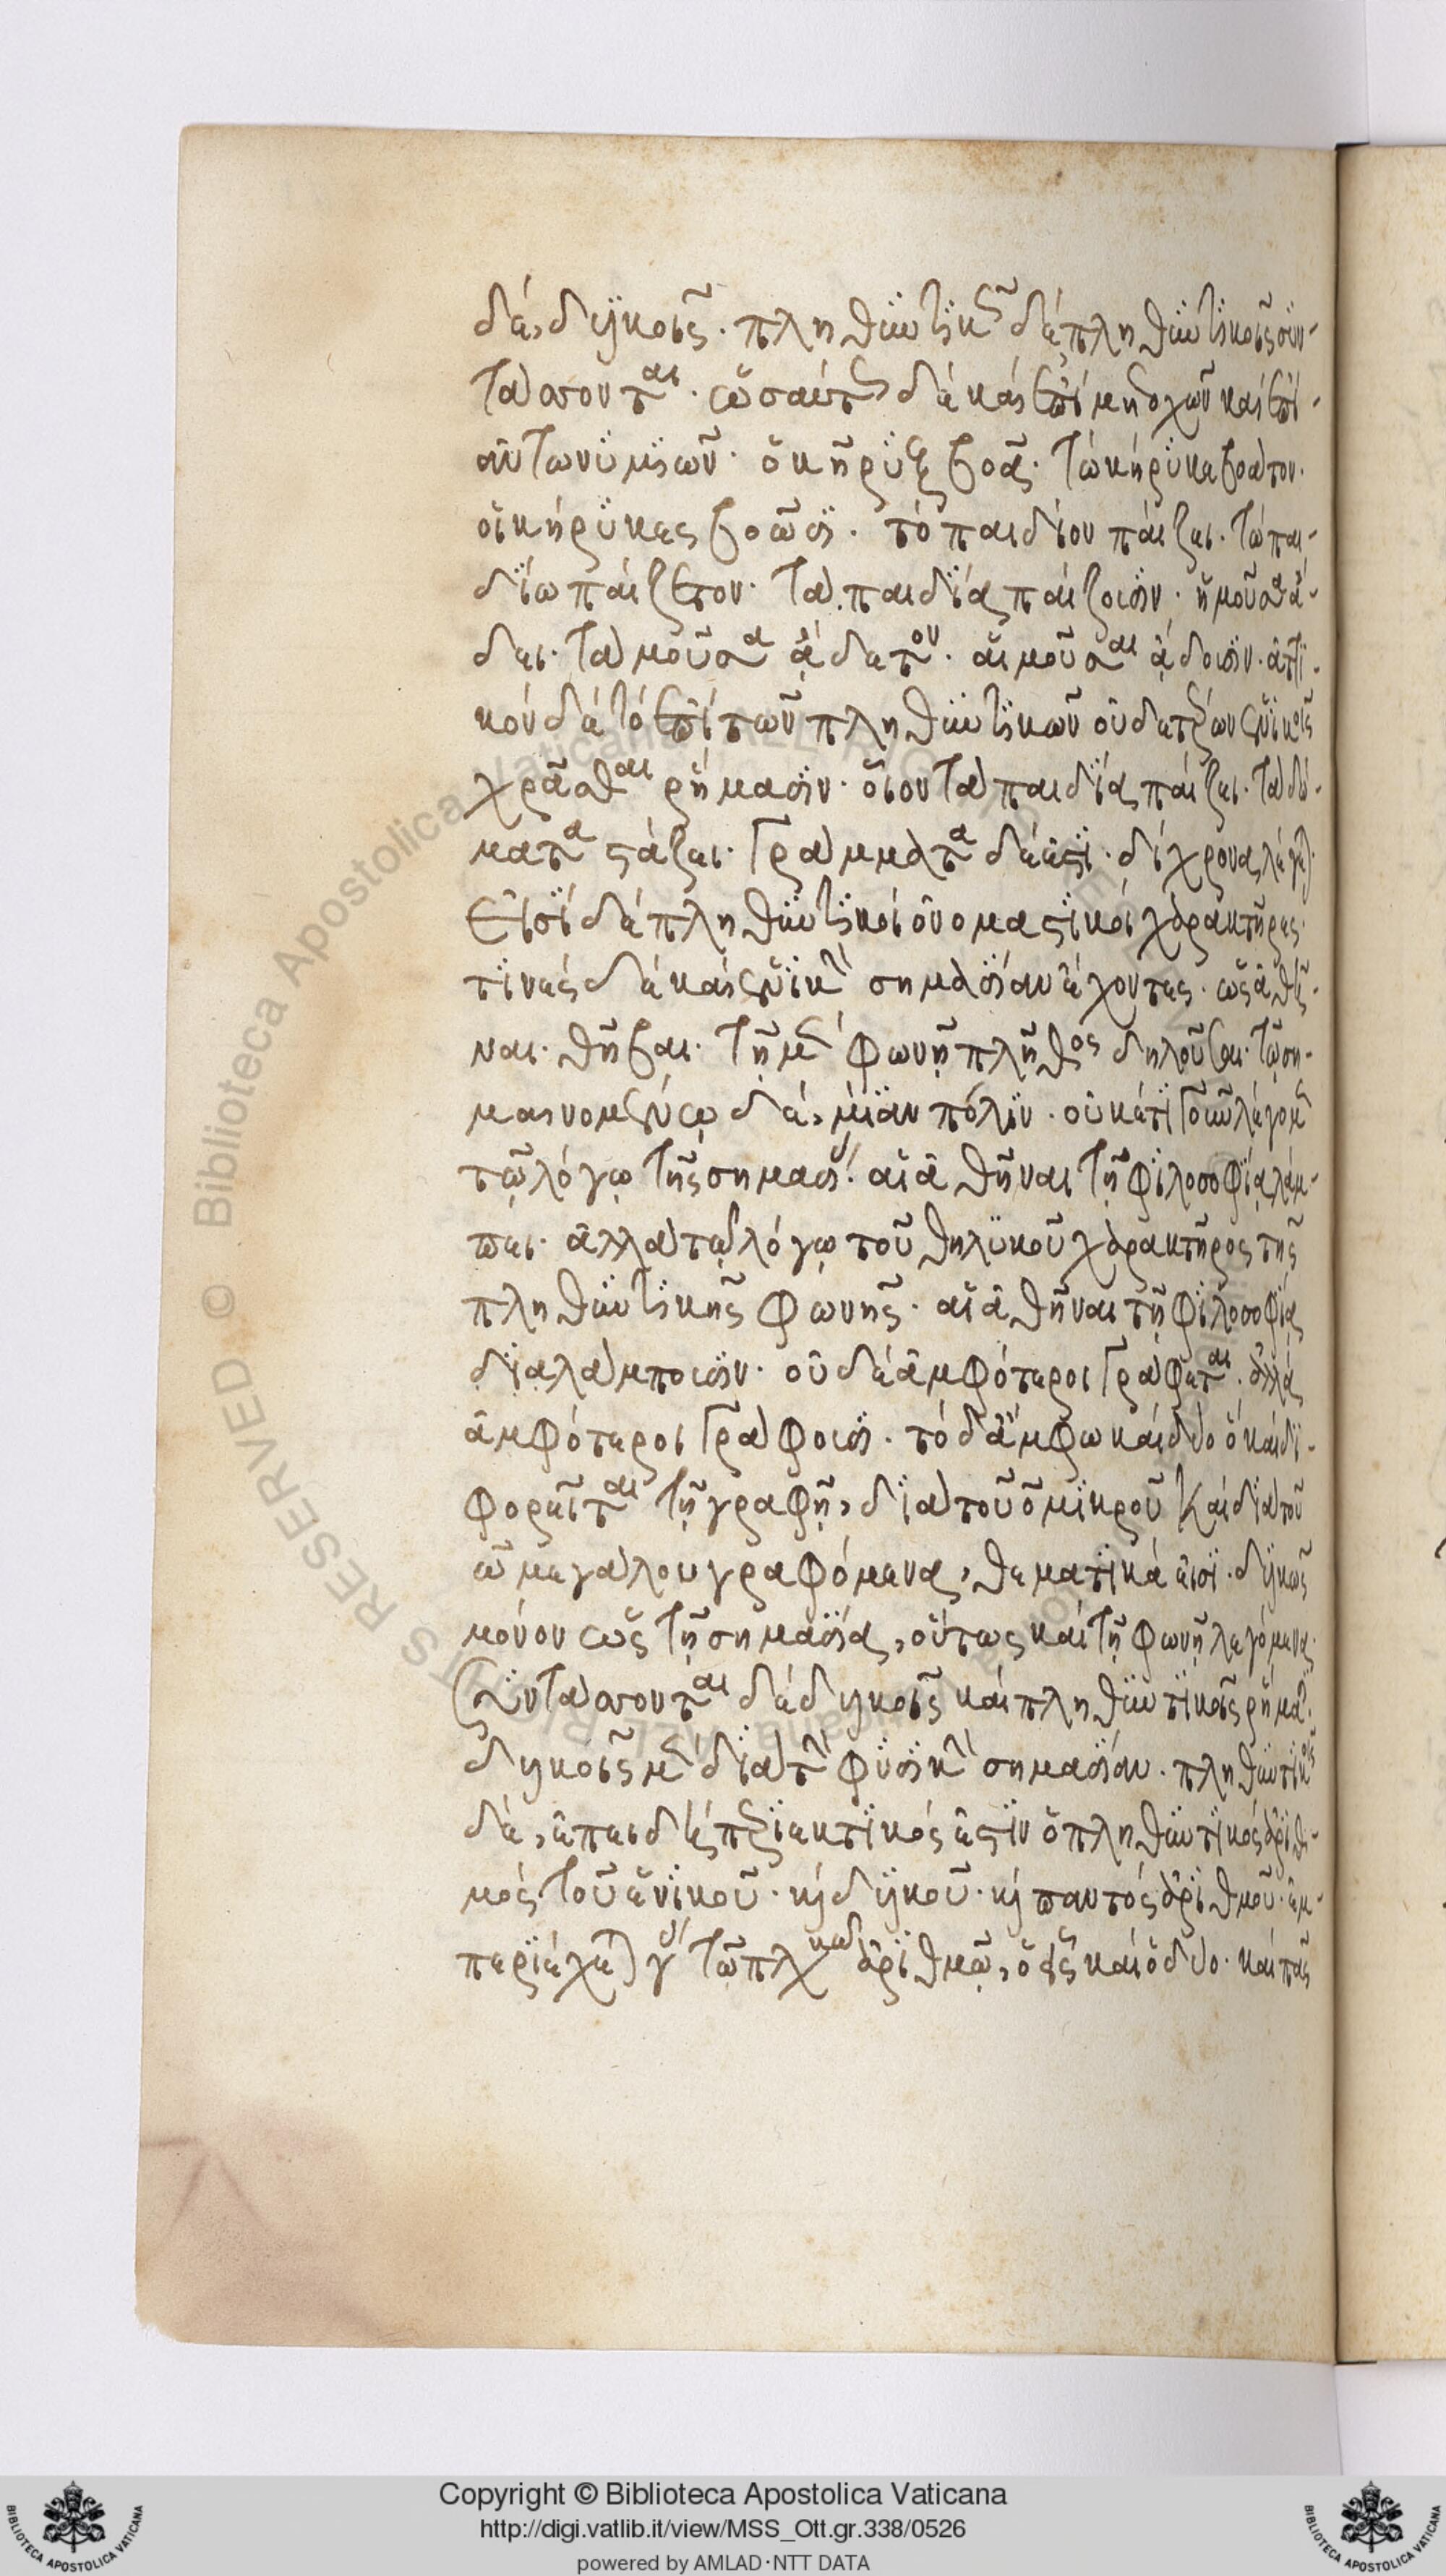 δὲ, δυϊκοῖς. πληθυντικῶς δὲ πληθυντικοῖς συν-
τάσσονται. ὡσαύτως δὲ καὶ ἐπὶ μετοχῶν καὶ ἐπὶ
ἀντωνυμιῶν. ὁ κήρυξ βοᾷ. τὼ κήρυκε βοᾶτον.
οἱ κήρυκες βοῶσι. τὸ παιδίον παίζει. τὼ παι-
δίω παίζετον. τὰ παιδία παίζουσιν. ἡ μοῦσα ᾄ-
δει. τὰ μούσα ᾄδετον. αἱ μοῦσαι ᾄδουσιν. ἀττι-
κὸν δὲ τὸ ἐπὶ τῶν πληθυντικῶν οὐδετέρων ἑνικοῖς
χρᾶσθαι ῥήμασιν. οἷον τὰ παιδία παίζει. τὰ δώ-
ματα στάζει. γράμματα δὲ ἐστὶ. δίχρονα λέγει.
Εἰσὶ δὲ πληθυντικοὶ ὀνομαστικοὶ χαρακτῆρες
τινὲς δὲ καὶ ἑνικὴν σημασίαν ἔχοντες. ὡς ἀθῆ-
ναι. θῆβαι. τῇ μὲν φωνῇ πλῆθος δηλοῦσαι. τῷ ση-
μαινομένῳ δὲ, μίαν πόλιν. οὐκέτι γοῦν λέγομεν
τῷ λόγῳ τῆς σημασίας. αἱ ἀθῆναι τῇ φιλοσοφίᾳ λάμ-
πει. ἀλλὰ τῷ λόγῳ τοῦ θηλυκοῦ χαρακτῆρος τῆς
πληθυντικῆς φωνῆς. αἱ ἀθῆναι τῇ φιλοσοφίᾳ
διαλάμπουσιν. οὐδὲ ἀμφότεροι γράφεται. ἀλλὰ
ἀμφότεροι γράφουσι. τὸ δ' ἄμφω καὶ δύο ὃ καὶ δι-
φορεῖται τῇ γραφῇ, διὰ τοῦ ο μικροῦ καὶ διὰ τοῦ
ω μεγάλου γραφόμενα, θεματικά εἰσι. δυϊκῶς
μόνον ὡς τῇ σημασίᾳ, οὕτως καὶ τῇ φωνῇ λεγόμενα.
Συντάσσονται δὲ δυϊκοῖς καὶ πληθυντικοῖς ῥήμασι.
δυϊκοῖς μὲν διὰ τὴν φυσικὴν σημασίαν. πληθυντικοῖς
δὲ, ἐπειδὴ περιεκτικός ἐστιν ὁ πληθυντικὸς ἀριθ-
μὸς τοῦ ἑνικοῦ. καὶ δυϊκοῦ. καὶ παντὸς ἀριθμοῦ. ἐμ-
περιέχεται γὰρ τῷ πληθυντικῷ ἀριθμῷ, ὁ εἷς καὶ ὁ δύο. καὶ πᾶς